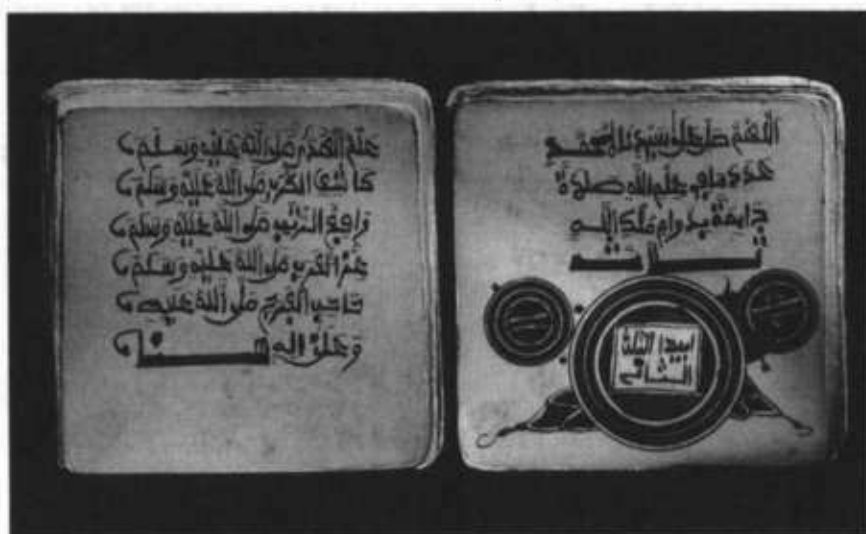 اللهم صل على سيدنا محمد
عدد ما في علم الله صلاة
دايمة بدوام ملك الله
الثلث
الثاني
علم الهدى صلى الله عليه وسلم
كاشف الكرب صلى الله عليه وسلم
رافع الرتب صلى الله عليه وسلم
عز العرب صلى الله عليه وسلم
صاحب الفرج صلى الله عليه
وعلى اله